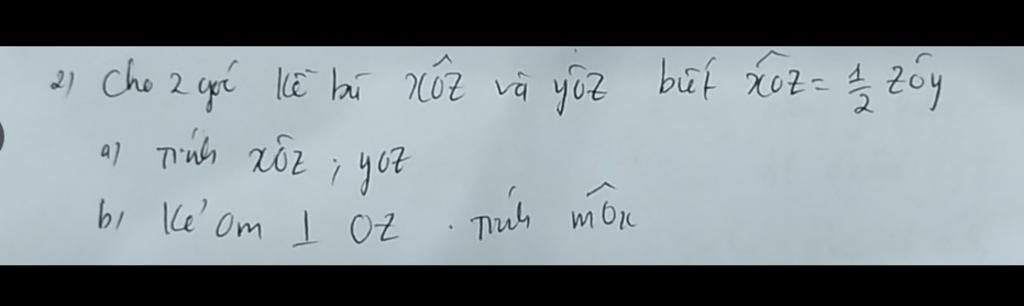 2) Cho 2 góc kề bù xÔz và yÔz biết xÔz = 1/2 zÔy
a) Tính xÔz ; yOz
b) Kẻ Om ⊥ OZ . Tính mÔx